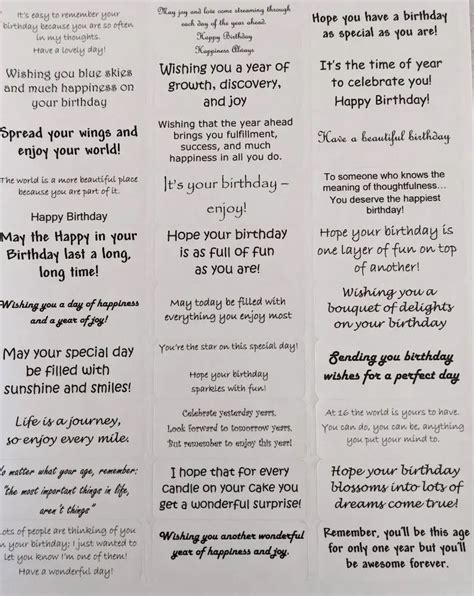 It's easy to remember your
birthday because you are so often
in my thoughts.
Have a lovely day!
Wishing you blue skies
and much happiness on
your birthday
Spread your wings and
enjoy your world!
The world is a more beautiful place
because you are part of it.
Happy Birthday
May the Happy in your
Birthday last a long,
long time!
Wishing you a day of happiness
and a year of joy!
May your special day
be filled with
sunshine and smiles!
Life is a journey,
so enjoy every mile.
matter what your age, remember:
"the most important things in life,
aren't things"
Lots of people are thinking of you
on your birthday; I just wanted to
let you know I'm one of them!
Have a wonderful day!
May joy and love come streaming through
each day of the year ahead.
Happy Birthday
Happiness Always
Wishing you a year of
growth, discovery,
and joy
Wishing that the year ahead
brings you fulfillment,
success, and much
happiness in all you do.
It's your birthday –
enjoy!
Hope your birthday
is as full of fun
as you are!
May today be filled with
everything you enjoy most
You're the star on this special day!
Hope your birthday
sparkles with fun!
Celebrate yesterday years.
Look forward to tomorrow years.
But remember to enjoy this year!
I hope that for every
candle on your cake you
get a wonderful surprise!
Wishing you another wonderful
year of happiness and joy.
Hope you have a birthday
as special as you are!
It's the time of year
to celebrate you!
Happy Birthday!
Have a beautiful birthday
To someone who knows the
meaning of thoughtfulness...
You deserve the happiest
birthday!
Hope your birthday is
one layer of fun on top
of another!
Wishing you a
bouquet of delights
on your birthday
Sending you birthday
wishes for a perfect day
At 16 the world is yours to have.
You can do, you can be, anything
you put your mind to.
Hope your birthday
blossoms into lots of
dreams come true!
Remember, you'll be this age
for only one year but you'll
be awesome forever.